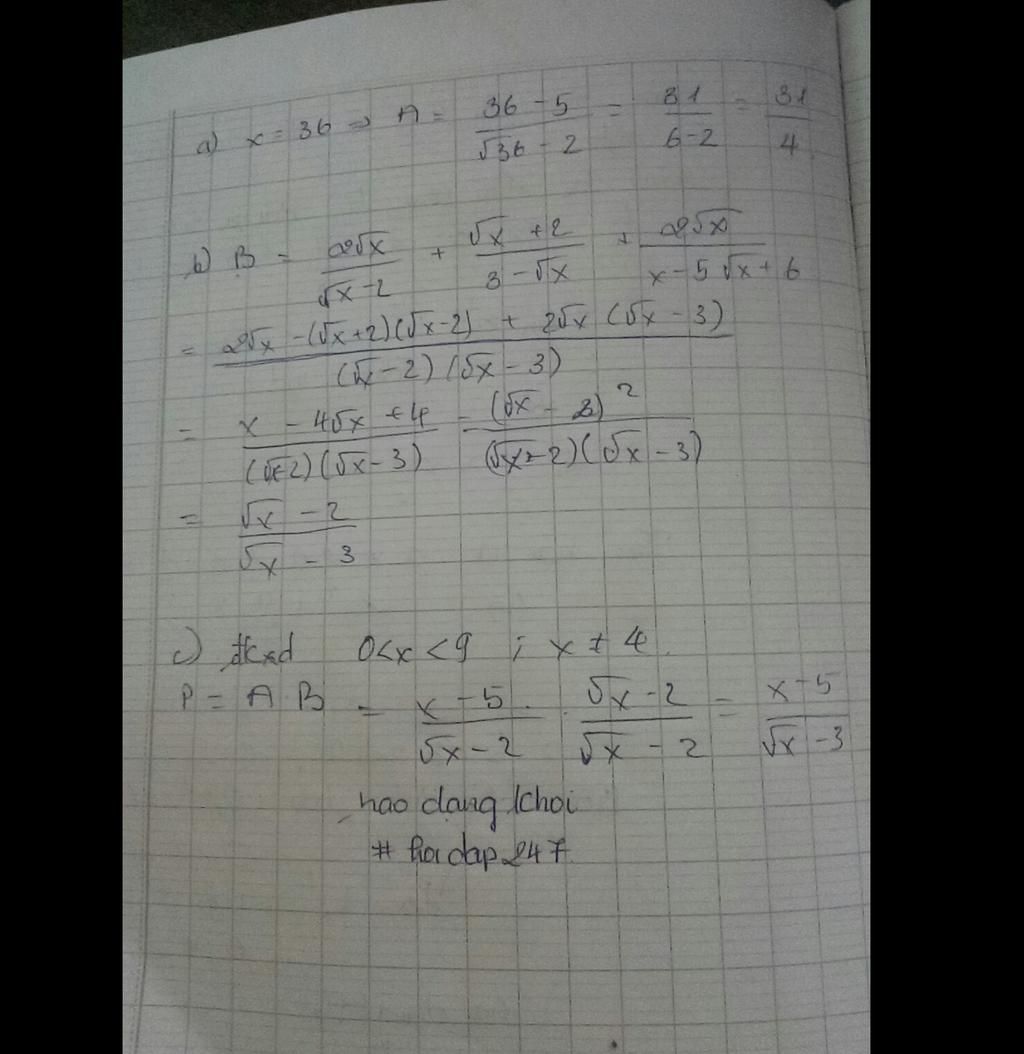 a) x = 36 ⇒ A = (36 - 5)/(√36 - 2) = 31/(6-2) = 31/4
b) B = 2√x/(√x - 2) + (√x + 2)/(3 - √x) + 2√x/(x - 5√x + 6)
= (2√x - (√x+2)(√x-2) + 2√x (√x - 3))/((√x - 2)(√x - 3))
= (x - 4√x + 4)/((√x-2)(√x-3)) = (√x - 2)²/((√x-2)(√x-3))
= (√x - 2)/(√x - 3)
c) đkxđ 0<x<9 ; x ≠ 4
P = A B = (x - 5)/(√x - 2) . (√x - 2)/(√x - 2) = (x - 5)/(√x - 3)
nao dang khoi
# hoidap247